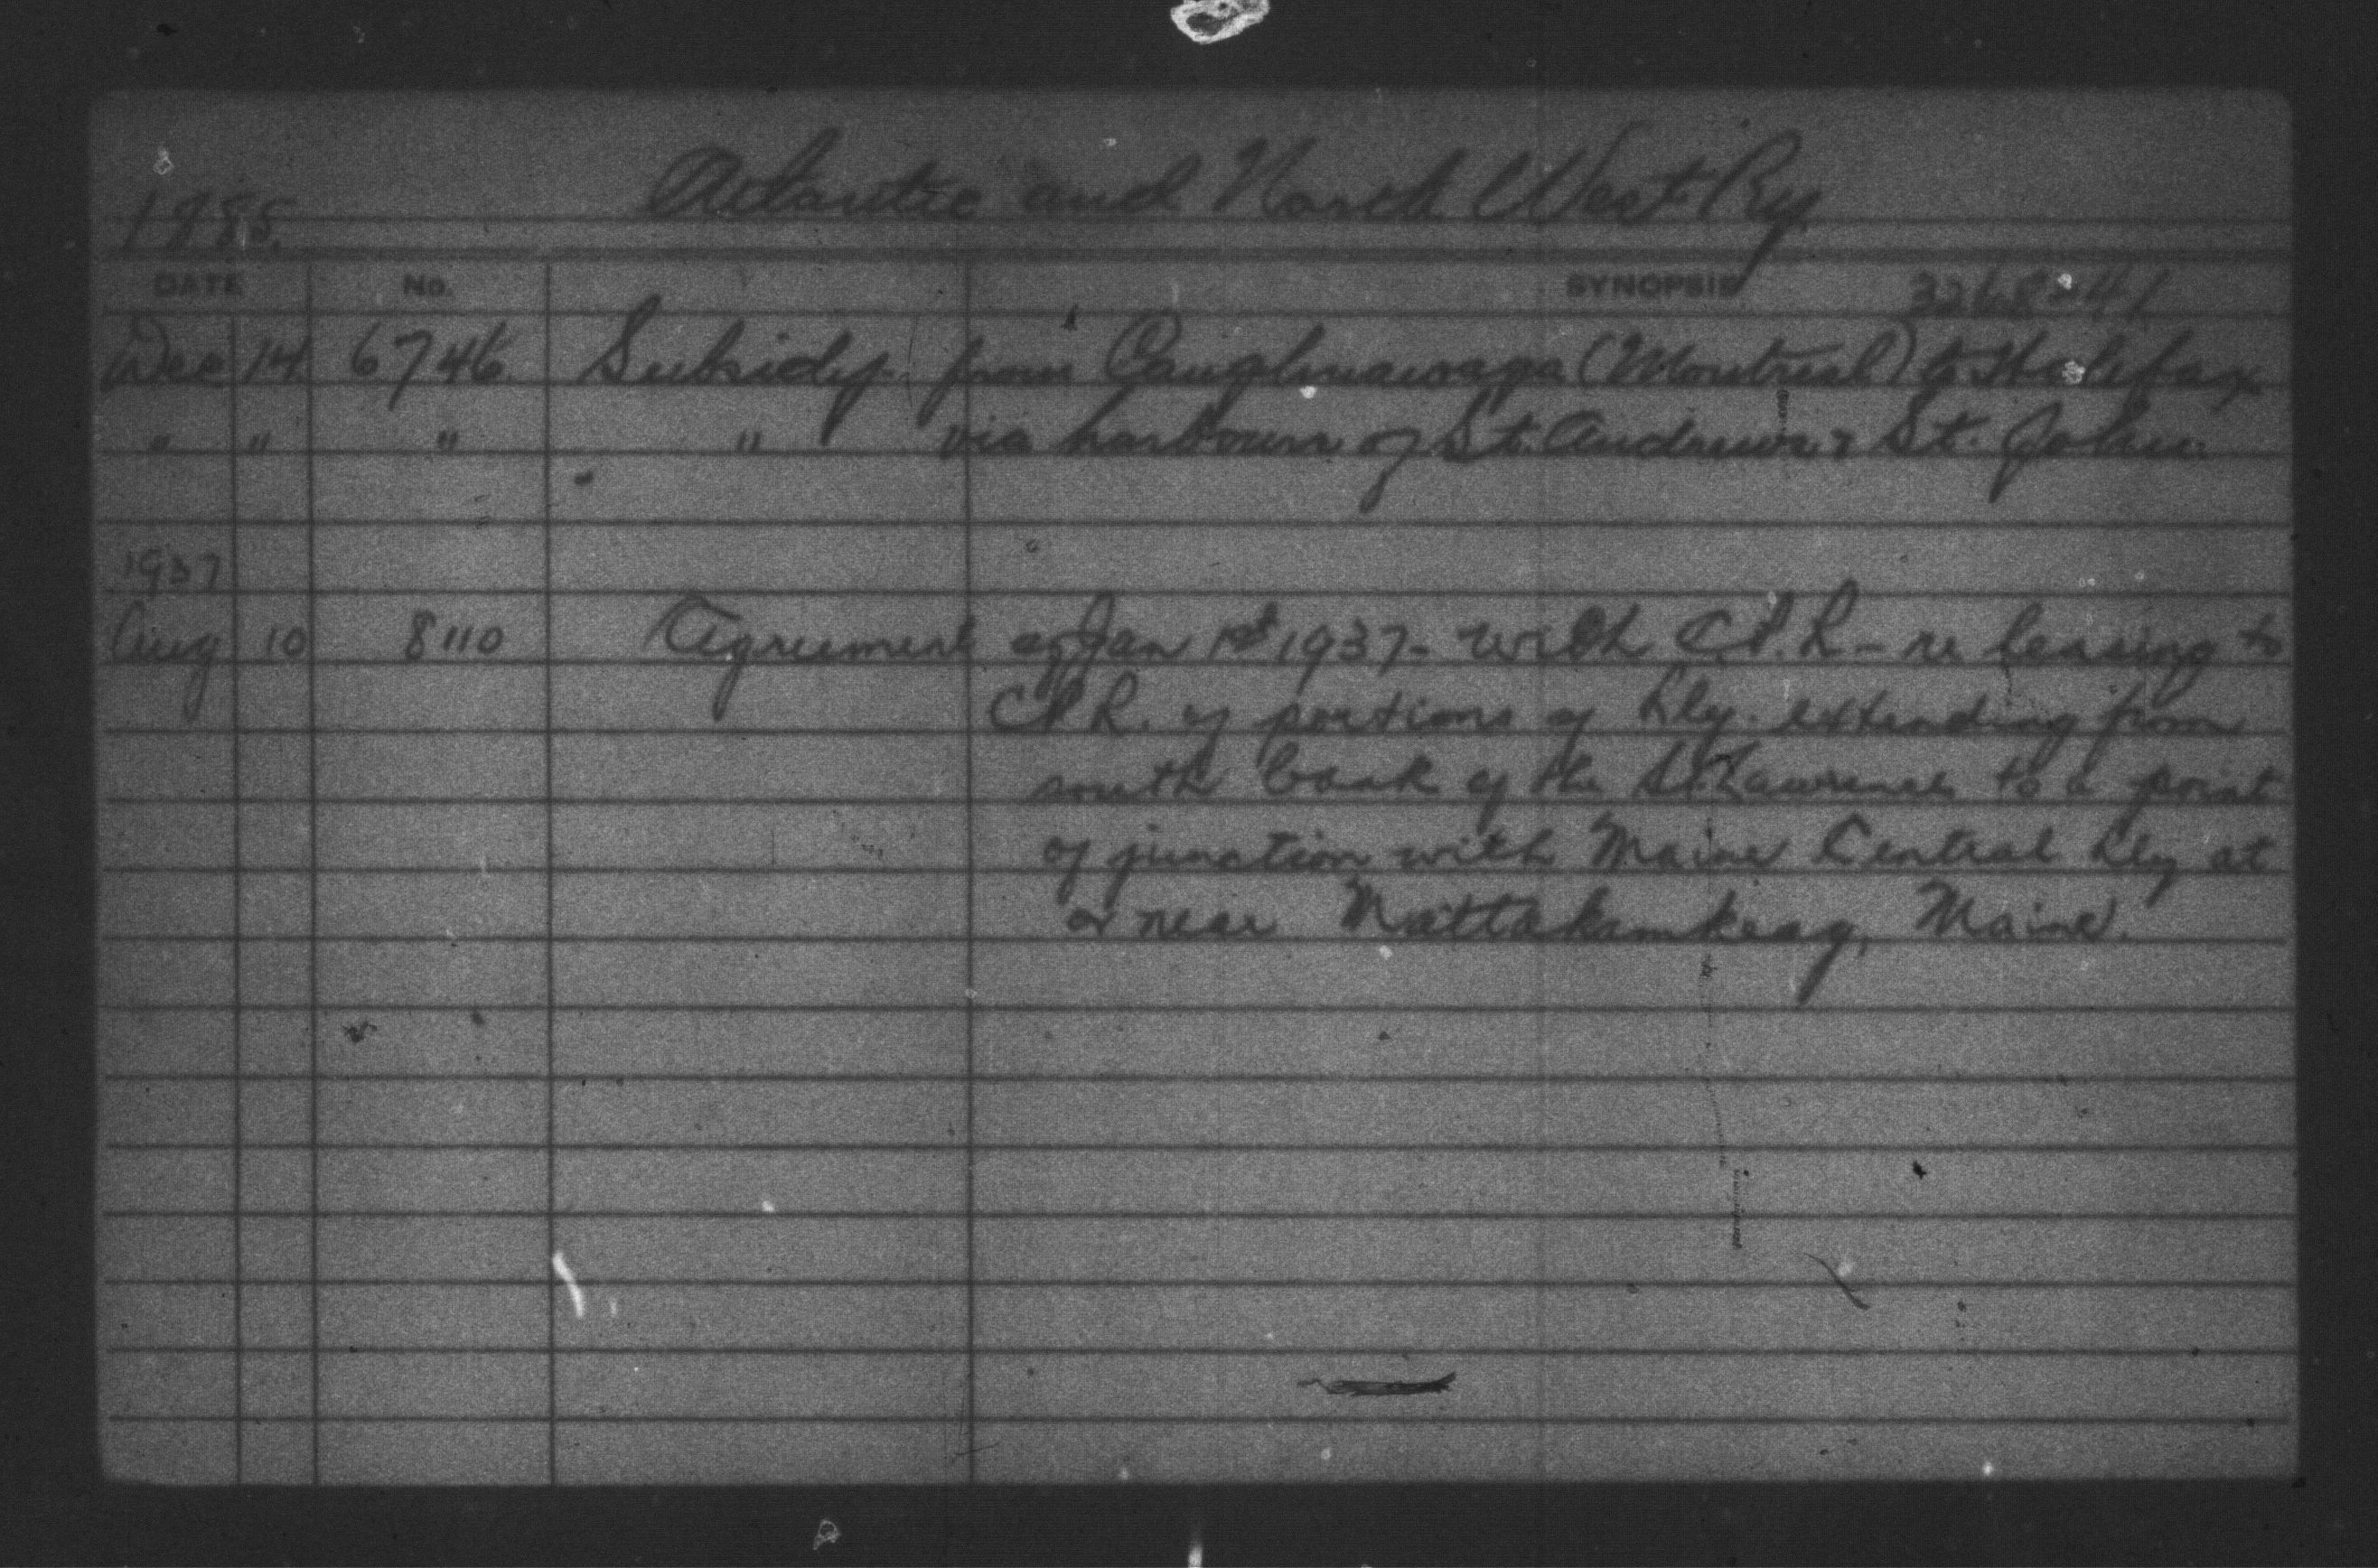 Atlantic and North West Ry.
1888.
DATE No. SYNOPSIS 3268-41
Dec 14 6746 Subsidy from Caughnawaga (Montreal) to Halifax
" " " " via harbours of St. Andrews & St. John.
1937
Aug 10 8110 Agreement of Jan 1st 1937 - with C.P.R - re leasing to
C.P.R. of portions of Rly. extending from
south bank of the St. Lawrence to a point
of junction with Maine Central Rly at
or near Mattakamkeag, Maine.